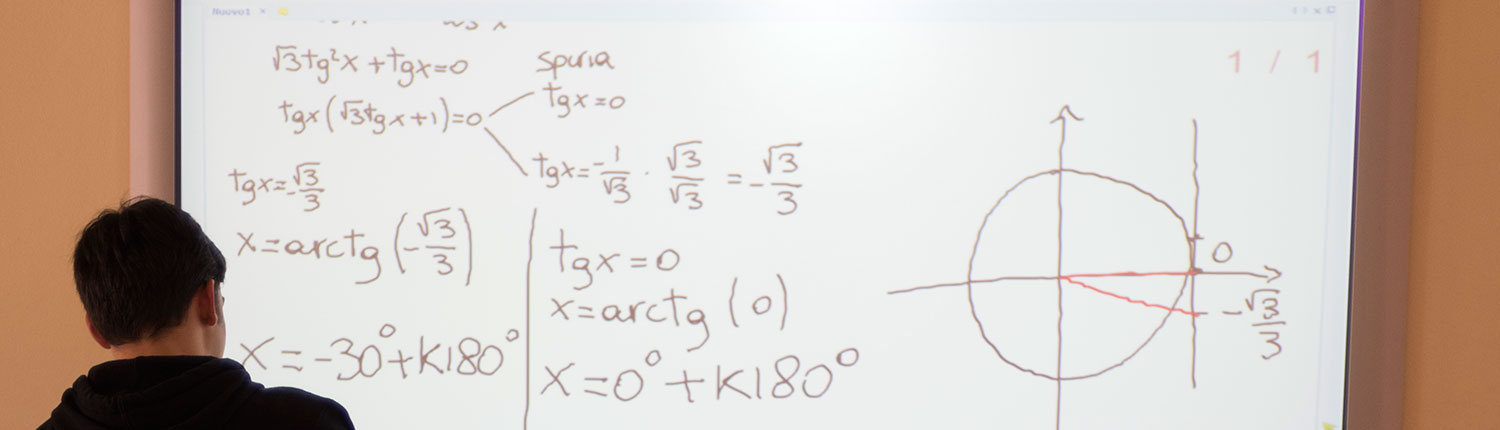 Nuovo1
1 / 1
√3tg²x + tgx=0
spuria
tgx(√3tgx+1)=0
tgx=0
tgx=-1/√3 · √3/√3 = -√3/3
tgx=-√3/3
x=arctg(-√3/3)
x=-30°+K180°
tgx=0
x=arctg(0)
x=0°+K180°
0
-√3/3